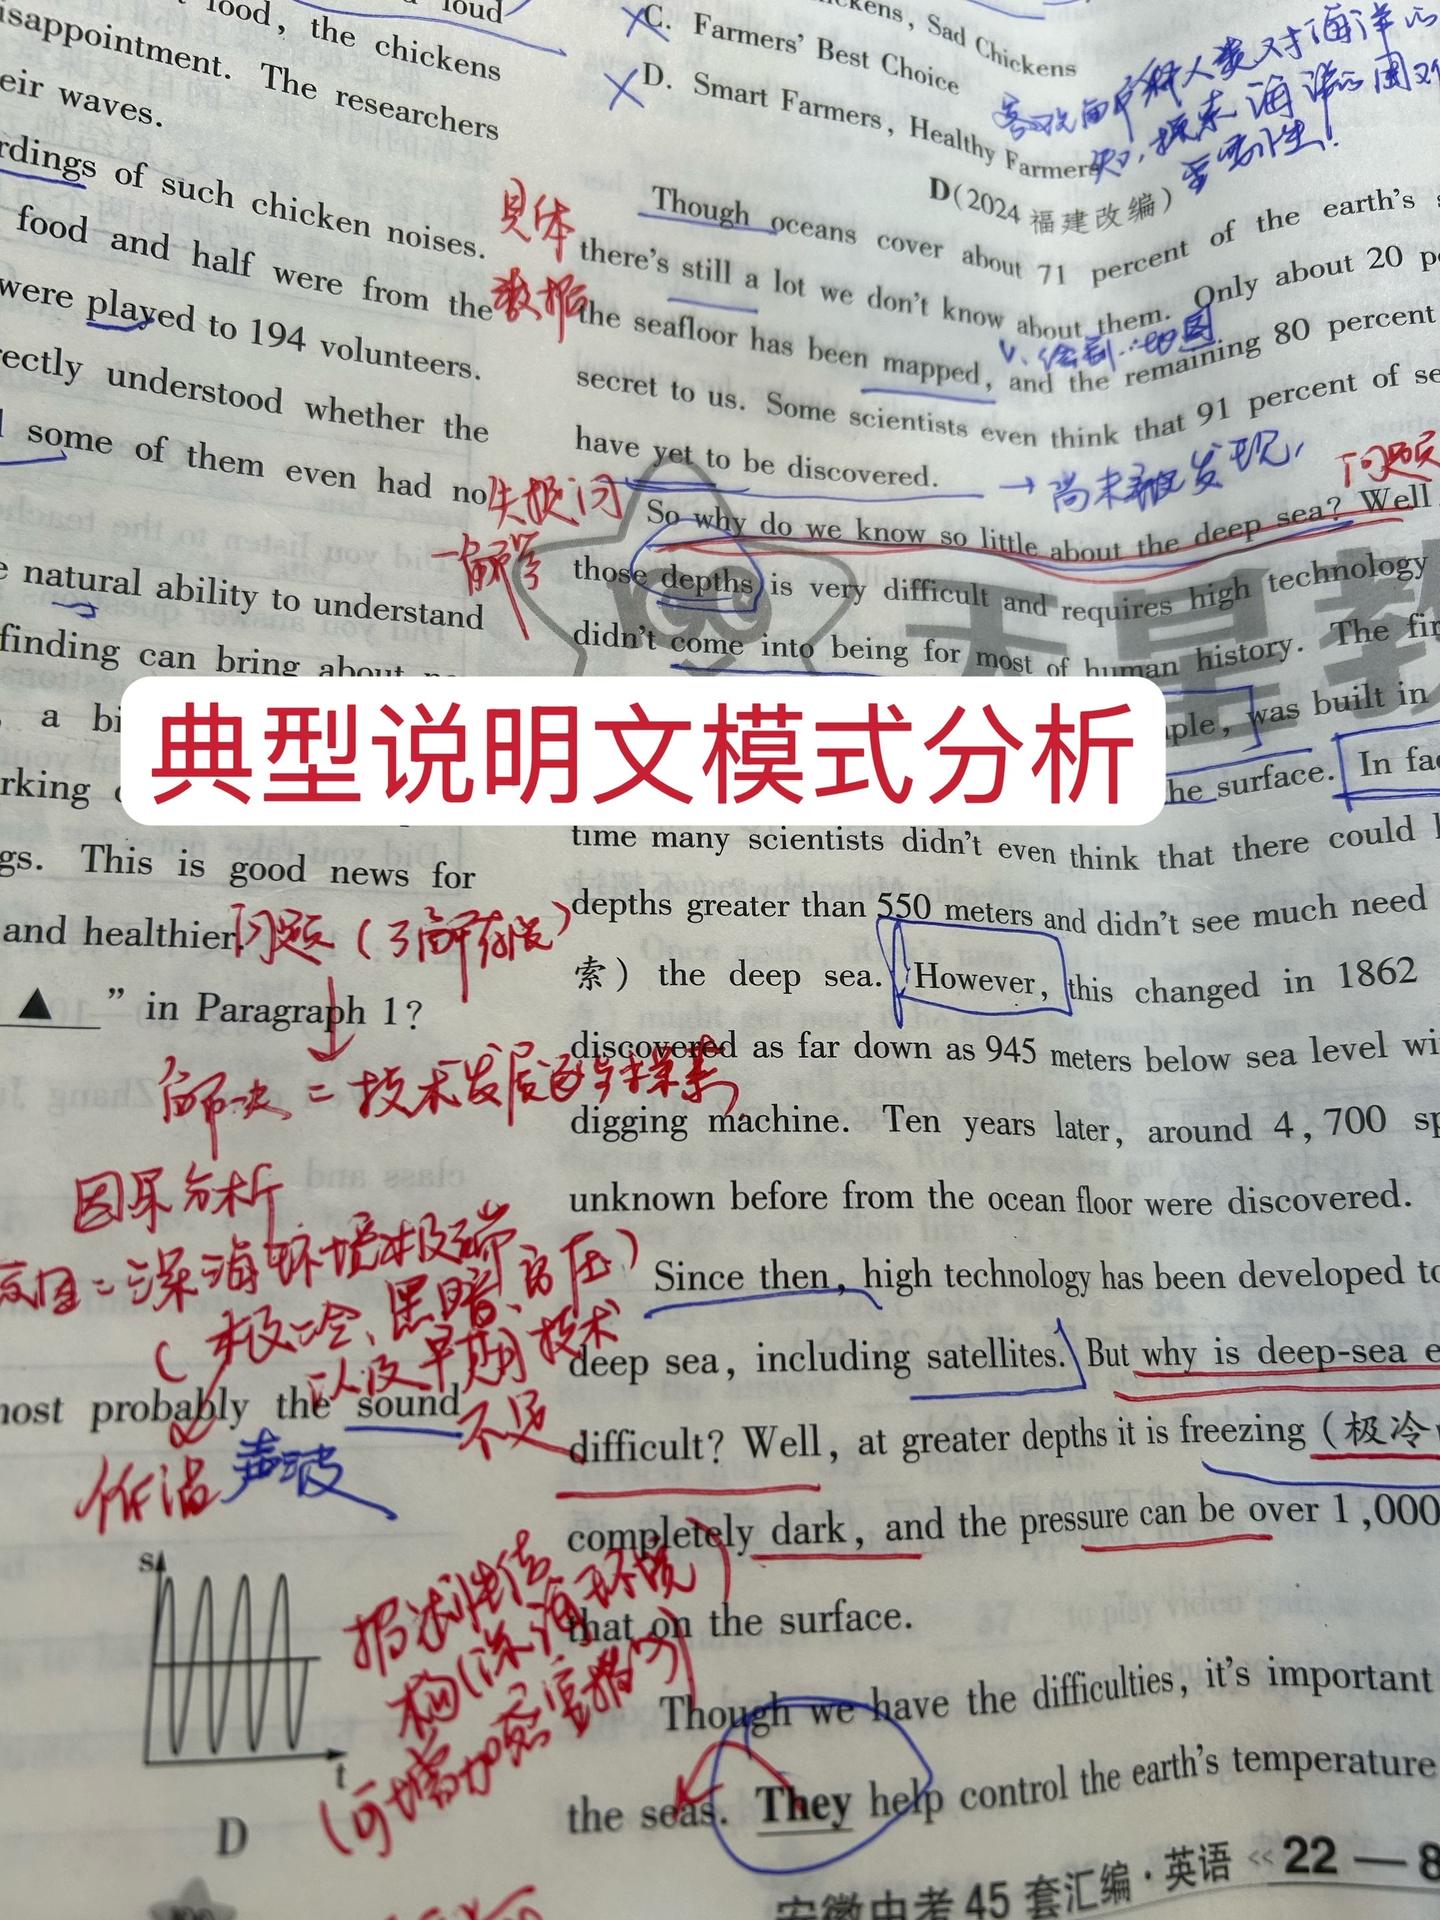 food, the chickens
isappointment. The researchers
eir waves.
rdings of such chicken noises.
food and half were from the
were played to 194 volunteers.
rectly understood whether the
some of them even had no
natural ability to understand
finding can bring about
a bi
rking
gs. This is good news for
and healthier.
▲ ” in Paragraph 1?
most probably the sound
s
t
D
具体
数据
失提问
问题（了解有限）
解决 = 技术发展
因果分析
原因 = 深海环境极端
（极冷、黑暗、高压）
以及早期技术
不足
声波
kens, Sad Chickens
C. Farmers' Best Choice
D. Smart Farmers, Healthy Farmers
重要性！
D(2024 福建改编)
Though oceans cover about 71 percent of the earth's s
there's still a lot we don't know about them. Only about 20 pe
the seafloor has been mapped, and the remaining 80 percent
v. 绘制…地图
secret to us. Some scientists even think that 91 percent of se
have yet to be discovered.
→ 尚未被发现，
问题
So why do we know so little about the deep sea? Well
those depths is very difficult and requires high technology
didn't come into being for most of human history. The fir
典型说明文模式分析
ple, was built in
the surface. In fac
time many scientists didn't even think that there could
depths greater than 550 meters and didn't see much need
索) the deep sea. However, this changed in 1862
discovered as far down as 945 meters below sea level wi
digging machine. Ten years later, around 4,700 sp
unknown before from the ocean floor were discovered.
Since then, high technology has been developed to
deep sea, including satellites. But why is deep-sea e
difficult? Well, at greater depths it is freezing (极冷
completely dark, and the pressure can be over 1,000
that on the surface.
Though we have the difficulties, it's important
the seas. They help control the earth's temperature
安徽中考45套汇编·英语 22—8